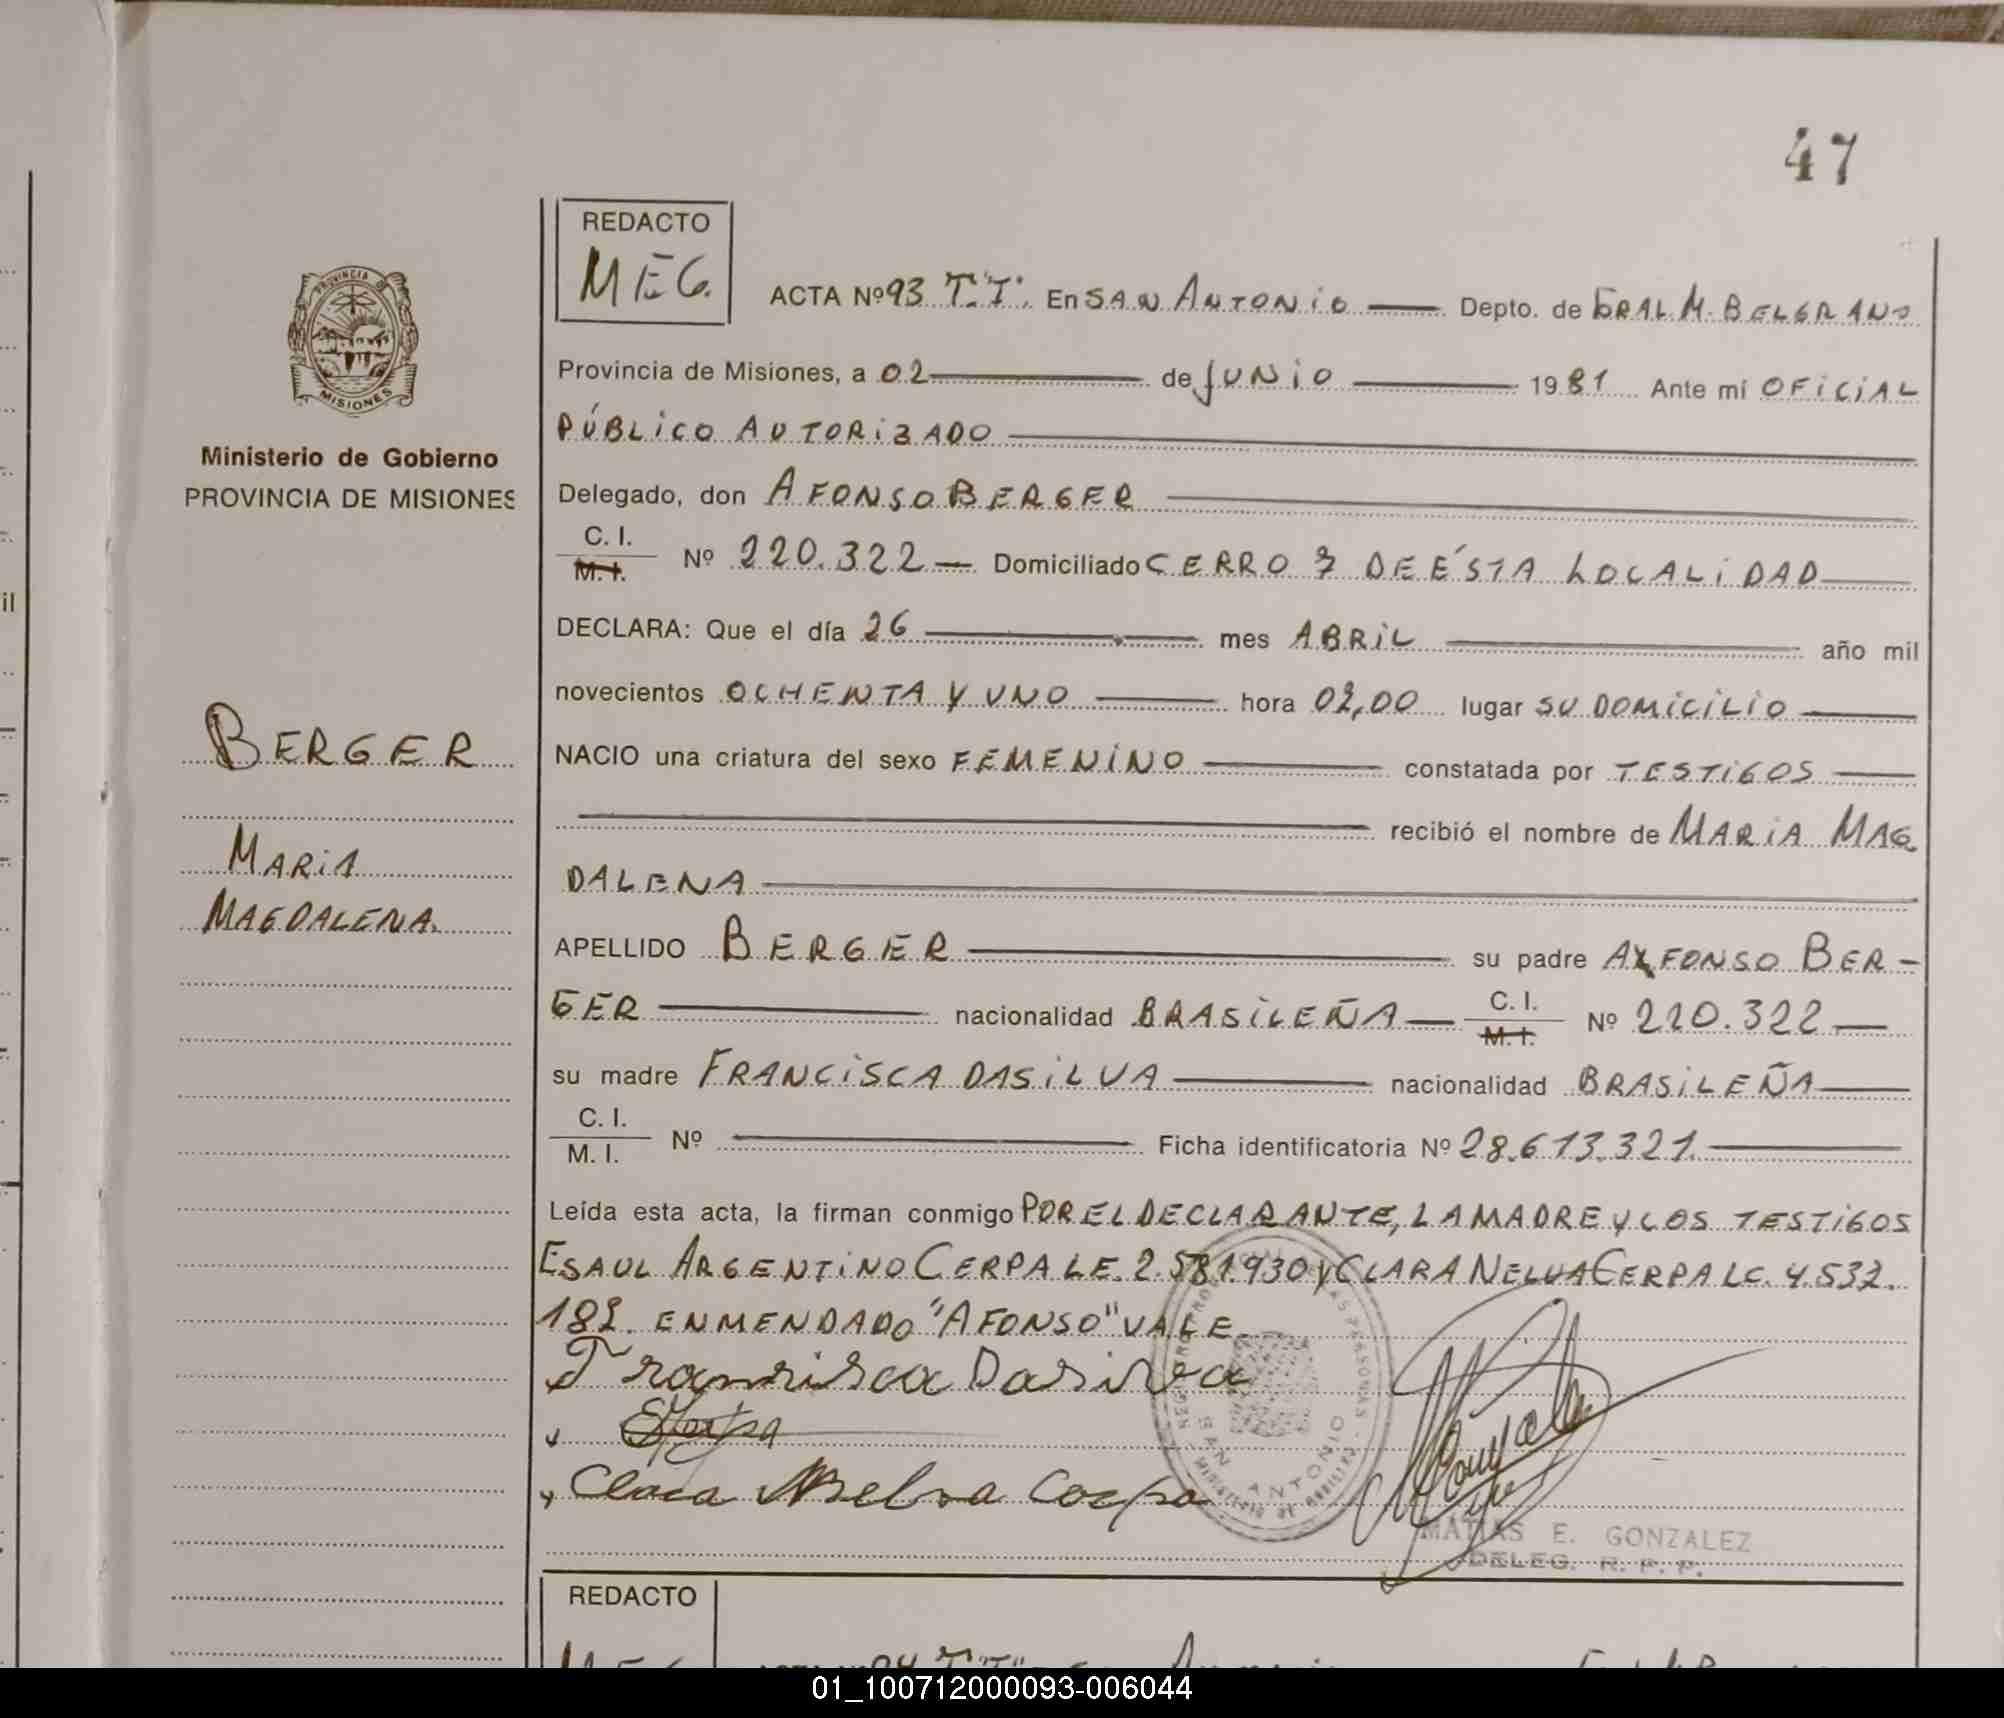 47
REDACTO
M E G.
ACTA Nº 93 T."I". En SAN ANTONIO Depto. de GRAL M. BELGRANO
Provincia de Misiones, a 02 de JUNIO 1981 Ante mí OFICIAL
PÚBLICO AUTORIZADO
Delegado, don AFONSO BERGER
C. I.
M. I.
Nº 220.322 — Domiciliado CERRO 7 DE ÉSTA LOCALIDAD
DECLARA: Que el día 26 mes ABRIL año mil
novecientos OCHENTA Y UNO hora 02,00 lugar SU DOMICILIO
NACIO una criatura del sexo FEMENINO constatada por TESTIGOS
recibió el nombre de MARIA MAG
DALENA
APELLIDO BERGER su padre AFONSO BER-
GER nacionalidad BRASILEÑA C. I.
M. I.
Nº 220.322 —
su madre FRANCISCA DASILVA nacionalidad BRASILEÑA
C. I.
M. I.
Nº Ficha identificatoria Nº 28.613.321.
Leída esta acta, la firman conmigo POR EL DECLARANTE, LA MADRE Y LOS TESTIGOS
ESAUL ARGENTINO CERPA LE. 2.581.930 Y CLARA NELVA CERPA LC. 4.532.
182. ENMENDADO "AFONSO" VALE.
Francisca Dasilva
Clara Nelva Cerpa
SAN ANTONIO
MATIAS E. GONZALEZ
DELEG. R. P. P.
PROVINCIA DE
MISIONES
Ministerio de Gobierno
PROVINCIA DE MISIONES
BERGER
MARIA
MAGDALENA.
il
REDACTO
01_100712000093-006044